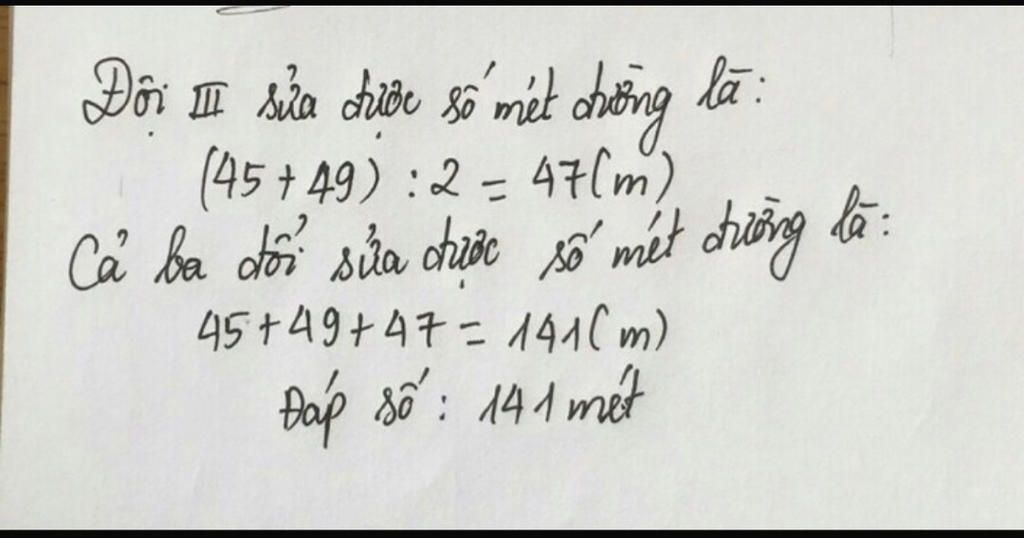 Đội III sửa được số mét đường là:
(45 + 49) : 2 = 47(m)
Cả ba đổi sửa được số mét đường là:
45 + 49 + 47 = 141(m)
Đáp số: 141 mét